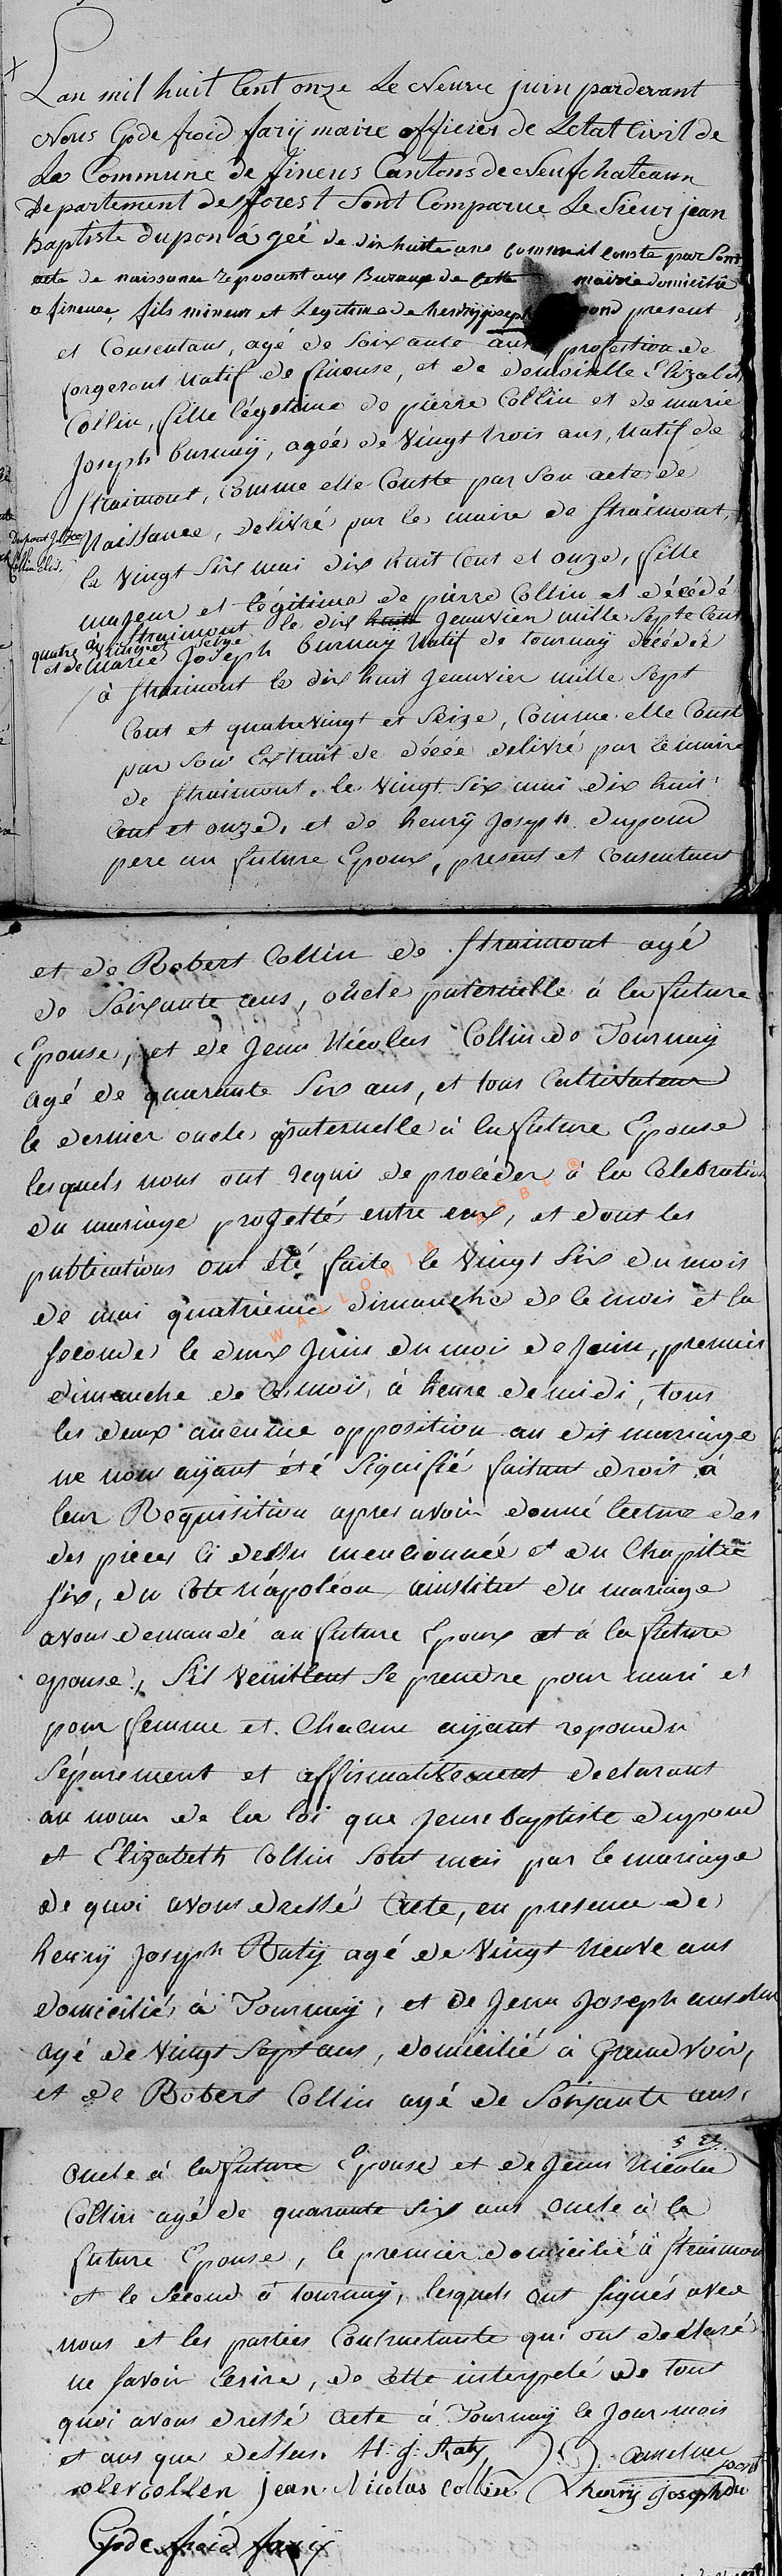 L'an mil huit Cent onze Le Neuve juin pardevant
Nous Gode froid farÿ maire officier de Letat Civil de
La Commune de fineus Cantons de Neufchateaux
Departement de forest Sont Comparue Le Sieur jean
Baptiste dupon ágeé de dixhuite ans comme il conste par Sont
acte de naissance reposant aux Buraux de Cette mairie domicilié
a fineuse, fils mineur et Legitime de henrÿ josep pond present
et Consentans, agé de Soixante ans, profession de
forgeront Natif de fineuse, et de demoiselle Elizabet
Collin, fille légetime de pierre Collin et de marie
Joseph burnaÿ, ageé de Vingt trois ans, Natif de
Straimont, Comme elle Conste par Son acte de
Naissance, delivré par le maire de Straimont,
Dupont J. Bte
Collin Eliz.
le Vingt Six mai dix huit Cent et onze, fille
majeur et légitime de pierre Collin et décédé
à Straimont le dix huit Jeanvier mille Septe Cent
quatre Vingt et Seize
et de Marie Joseph burnaÿ Natif de tournaÿ décédée
à Straimont le dix huit Jeanvier mille Sept
Cent et quatre Vingt et Seize, Comme elle Const
par Son Extrait de décée delivré par le maire
de Straimont, le Vingt Six mai dix huit
Cent et onze, et de henrÿ Joseph dupond
pere au future Epoux, present et Consentant
et de Robert Collin de Straimont agé
de Soixante ans, oncle paternelle à la future
Epouse, et de Jean Nicolas Collin de Tournaÿ
agé de quarante Six ans, et tous Cultivateur
le dernier oncle paternelle à la future Epouse
lesquels nous ont requis de procéder à la Celebration
du mariage projetté entre eux, et dont les
publications ont été faite le Vingt Six du mois
de mai quatrieme dimanche de le mois et la
Seconde le deux Juin du mois de Juin, premier
dimanche de Ce mois, à heure de midi, tous
les deux aucune opposition au dit mariage
ne nous aÿant été Signifié faisant droit à
leur Requisition apres avoir donné lecture des
des pieces Ci dessu mentionnée et du Chapitre
Six, du Code Napoléon, intitule du mariage
avons demandé au future Epoux et à la future
epouse, S'il Veuillent Se prendre pour mari et
pour femme et Chacune aÿant repondu
Séparement et affirmativement declarons
au nom de la loi que Jean baptiste dupond
et Elizabeth Collin Sont unis par le mariage
de quoi avons dressé Acte, en presence de
henrÿ Joseph Ratÿ agé de Vingt Neuve ans
domicilié à Tournaÿ, et de Jean Joseph anselm
agé de Vingt Sept ans, domicilié à Grandvoir,
et de Robert Collin agé de Soixante ans,
oncle à la future Epouse et de Jean Nicolas
Collin agé de quarante Six ans oncle à la
future Epouse, le premier domicilié à Straimon
et le Second à tournaÿ, lesquels ont Signés avec
nous et les parties Contractante qui ont declaré
ne Savoir Ecrire, de Cette interpelé de tout
quoi avons dressé Acte à Tournaÿ le Jour mois
et ans que dessus. H. j. Raty J. J. anselme
rober collen jean Nicolas Collin henrÿ Joseph du
pont
Gode froid farÿ
WALLONIA ASBL ®